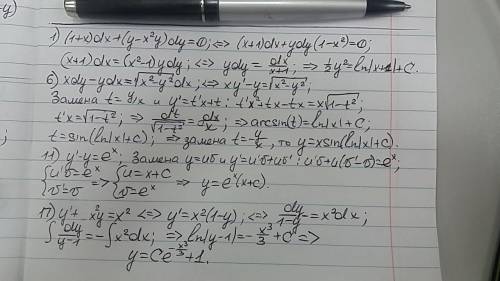 1) (1+x)dx+(y-x²y)dy=0; <=> (x+1)dx+ydy(1-x²)=0;
(x+1)dx=(x²-1)ydy; <=> ydy=dx/(x-1); => ½y²=ln|x-1|+C.
6) xdy-ydx=√(x²-y²)dx; <=> xy'-y=√(x²-y²);
Замена t=y/x и y'=t'x+t: t'x+tx-tx=x√(1-t²);
t'x=√(1-t²); => dt/√(1-t²)=dx/x; => arcsin(t)=ln|x|+C;
t=sin(ln|x|+C); => замена t=y/x, то y=xsin(ln|x|+C).
11) y'-y=eˣ; Замена y=uv и y'=u'v+uv': u'v+u(v'-v)=eˣ;
{u'v=eˣ {u=x+C
{v'=v => {v=eˣ => y=eˣ(x+C).
17) y'+x²y=x² <=> y'=x²(1-y); <=> dy/(1-y)=x²dx;
∫dy/(y-1)=-∫x²dx; => ln|y-1|=-x³/3+C =>
y=Ce^(-x³/3)+1.